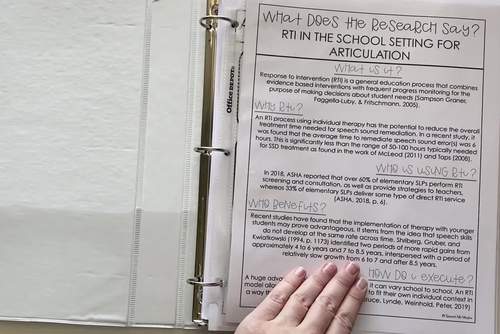 What Does the Research Say?
RTI IN THE SCHOOL SETTING FOR
ARTICULATION
What is it?
Response to Intervention (RTI) is a general education process that combines
evidence based interventions with frequent progress monitoring for the
purpose of making decisions about student needs (Sampson Graner,
Faggella-Luby, & Fritschmann, 2005).
Office DEPOT
Why RTI?
An RTI process using individual therapy has the potential to reduce the overall
treatment time needed for speech sound remediation. In a recent study, it
was found that the average time to remediate speech sound error(s) was 6
hours. This is significantly less than the range of 50-100 hours typically needed
for SSD treatment as found in the work of McLeod (2011) and Taps (2008).
Who is using RTI?
In 2018, ASHA reported that over 60% of elementary SLPs perform RTI
screening and consultation, as well as provide strategies to teachers,
whereas 33% of elementary SLPs deliver some type of direct RTI service
(ASHA, 2018, p. 6).
Who Benefits?
Recent studies have found that the implementation of therapy with younger
students may prove advantageous. It stems from the idea that speech skills
do not develop at the same rate across time. Shriberg, Gruber, and
Kwiatkowski (1994, p. 1173) identified two periods of more rapid gains from
approximately 4 to 6 years and 7 to 8.5 years, interspersed with a period of
relatively slow growth from 6 to 7 and after 8.5 years.
How do u execute?
A huge adva it can vary school to school. An RTI
model allo to fit their own individual context in
a way th uce, Lynde, Weinhold, Peter, 2019)